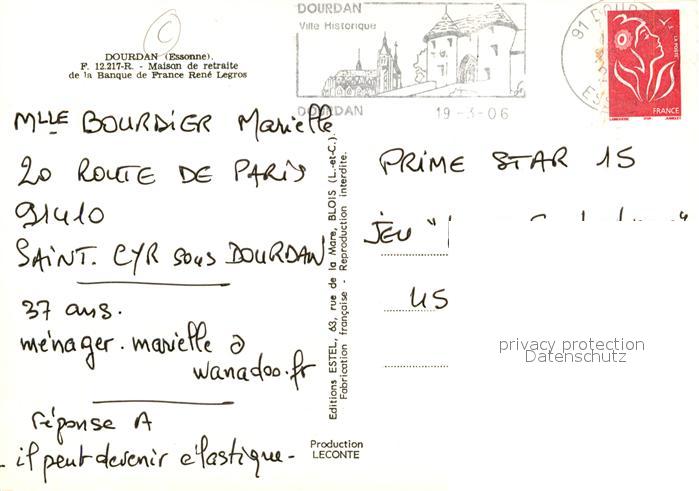 DOURDAN (Essonne).
F. 12.217-R. - Maison de retraite
de la Banque de France René Legros
DOURDAN
Ville Historique
DOURDAN
19-3-06
91 DOUR
ESS
LA POSTE
FRANCE
Mlle BOURDIER Marielle
20 ROUTE DE PARIS
91410
SAINT. CYR sous DOURDAN
37 ans.
ménager.marielle @
wanadoo.fr
réponse A
il peut devenir élastique-
Editions ESTEL, 63, rue de la Mare, BLOIS (L.-et-C.).
Fabrication française - Reproduction interdite.
Production
LECONTE
PRIME STAR 15
JEU "
45
privacy protection
Datenschutz